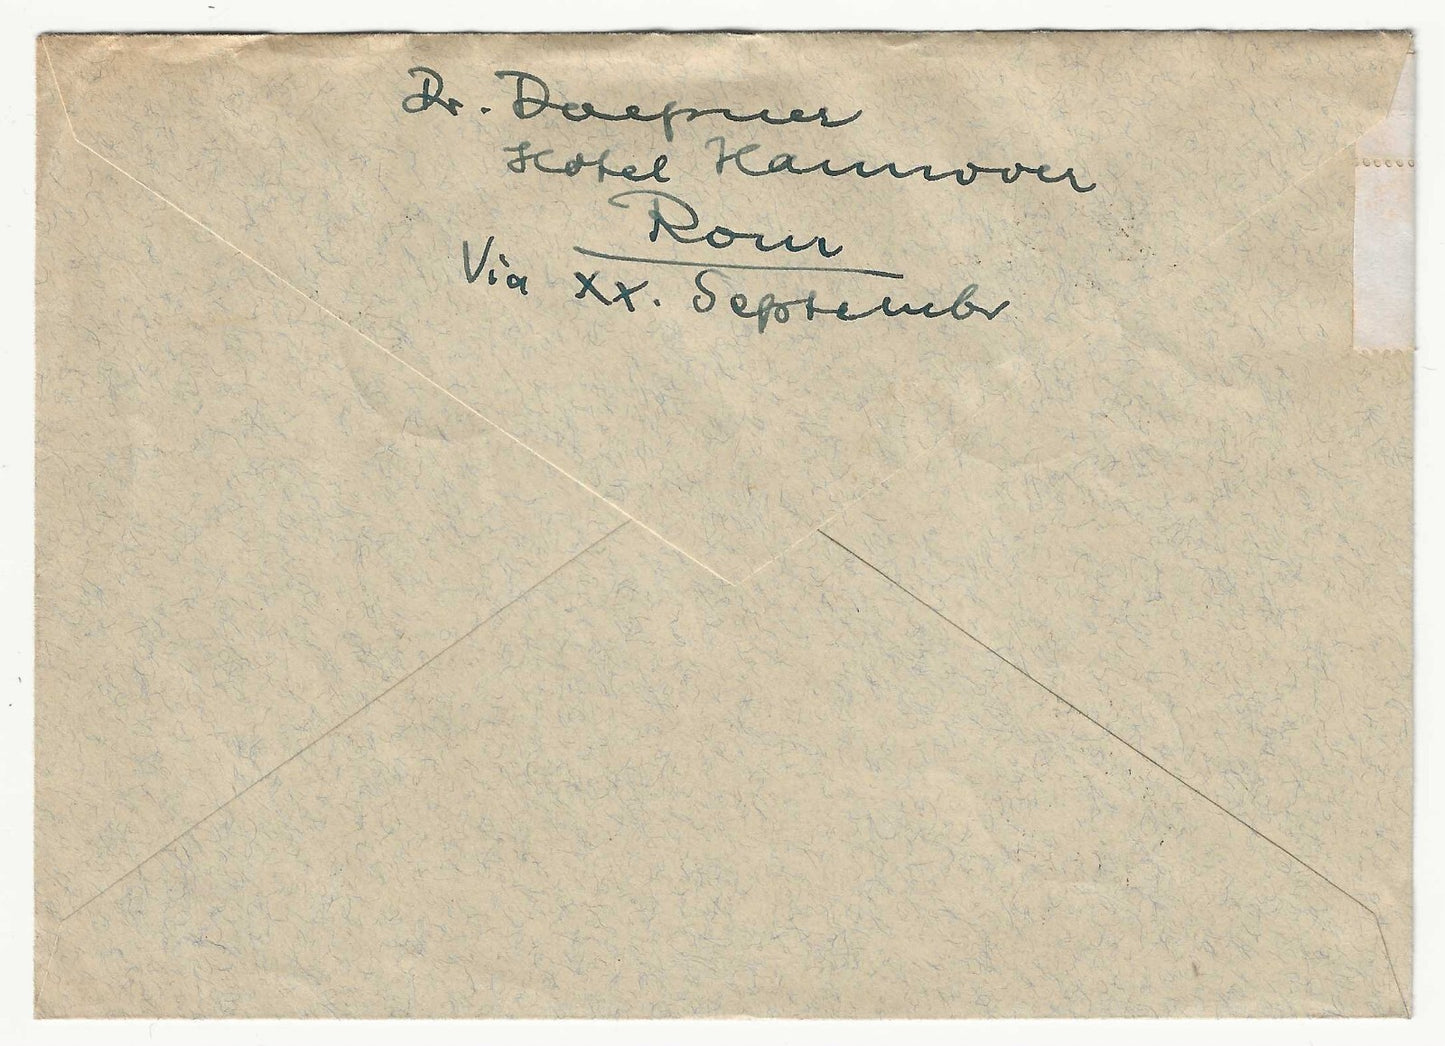 Dr. Doepner
Hotel Hannover
Rom
Via XX. Septembr